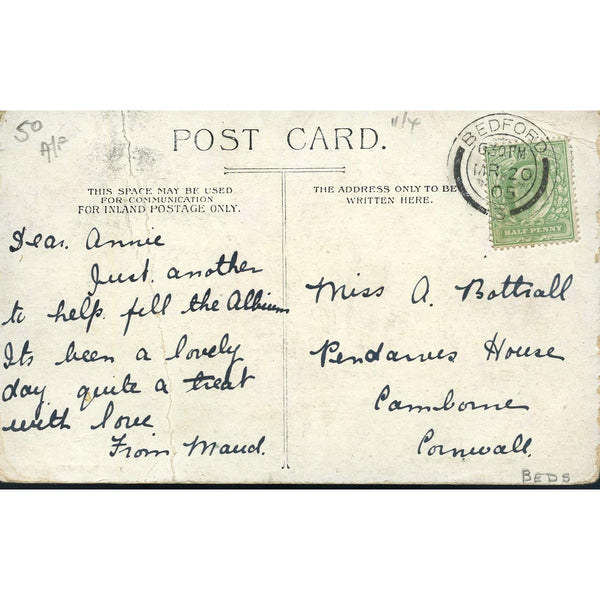 50
A/F
11/4
POST CARD.
BEDFORD
6 30 PM
MR 20
05
HALF PENNY
THIS SPACE MAY BE USED
FOR COMMUNICATION
FOR INLAND POSTAGE ONLY.
THE ADDRESS ONLY TO BE
WRITTEN HERE.
Dear Annie
Just another
to help fill the Album
Its been a lovely
day quite a treat
with love
From Maud.
Miss A. Bottrall
Pendarves House
Camborne
Cornwall.
BEDS